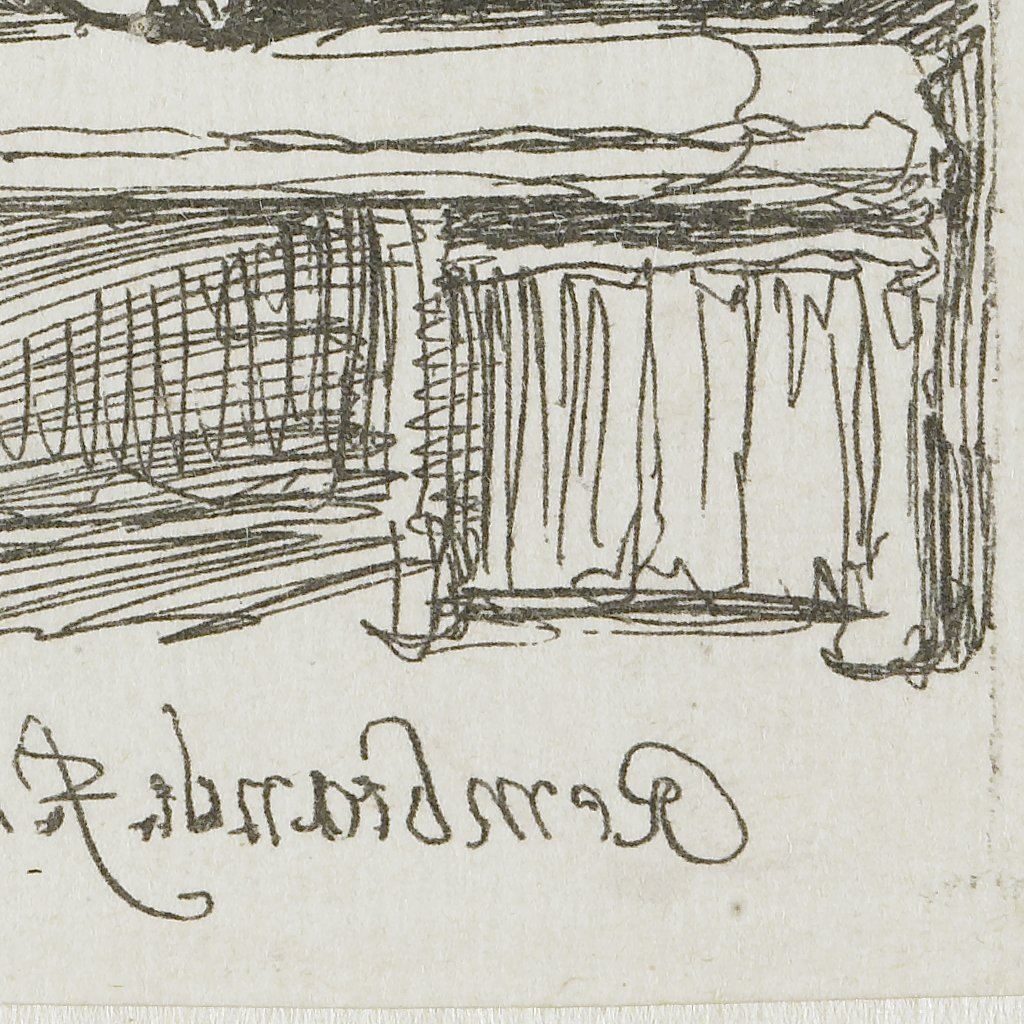 Rembrandt. f.